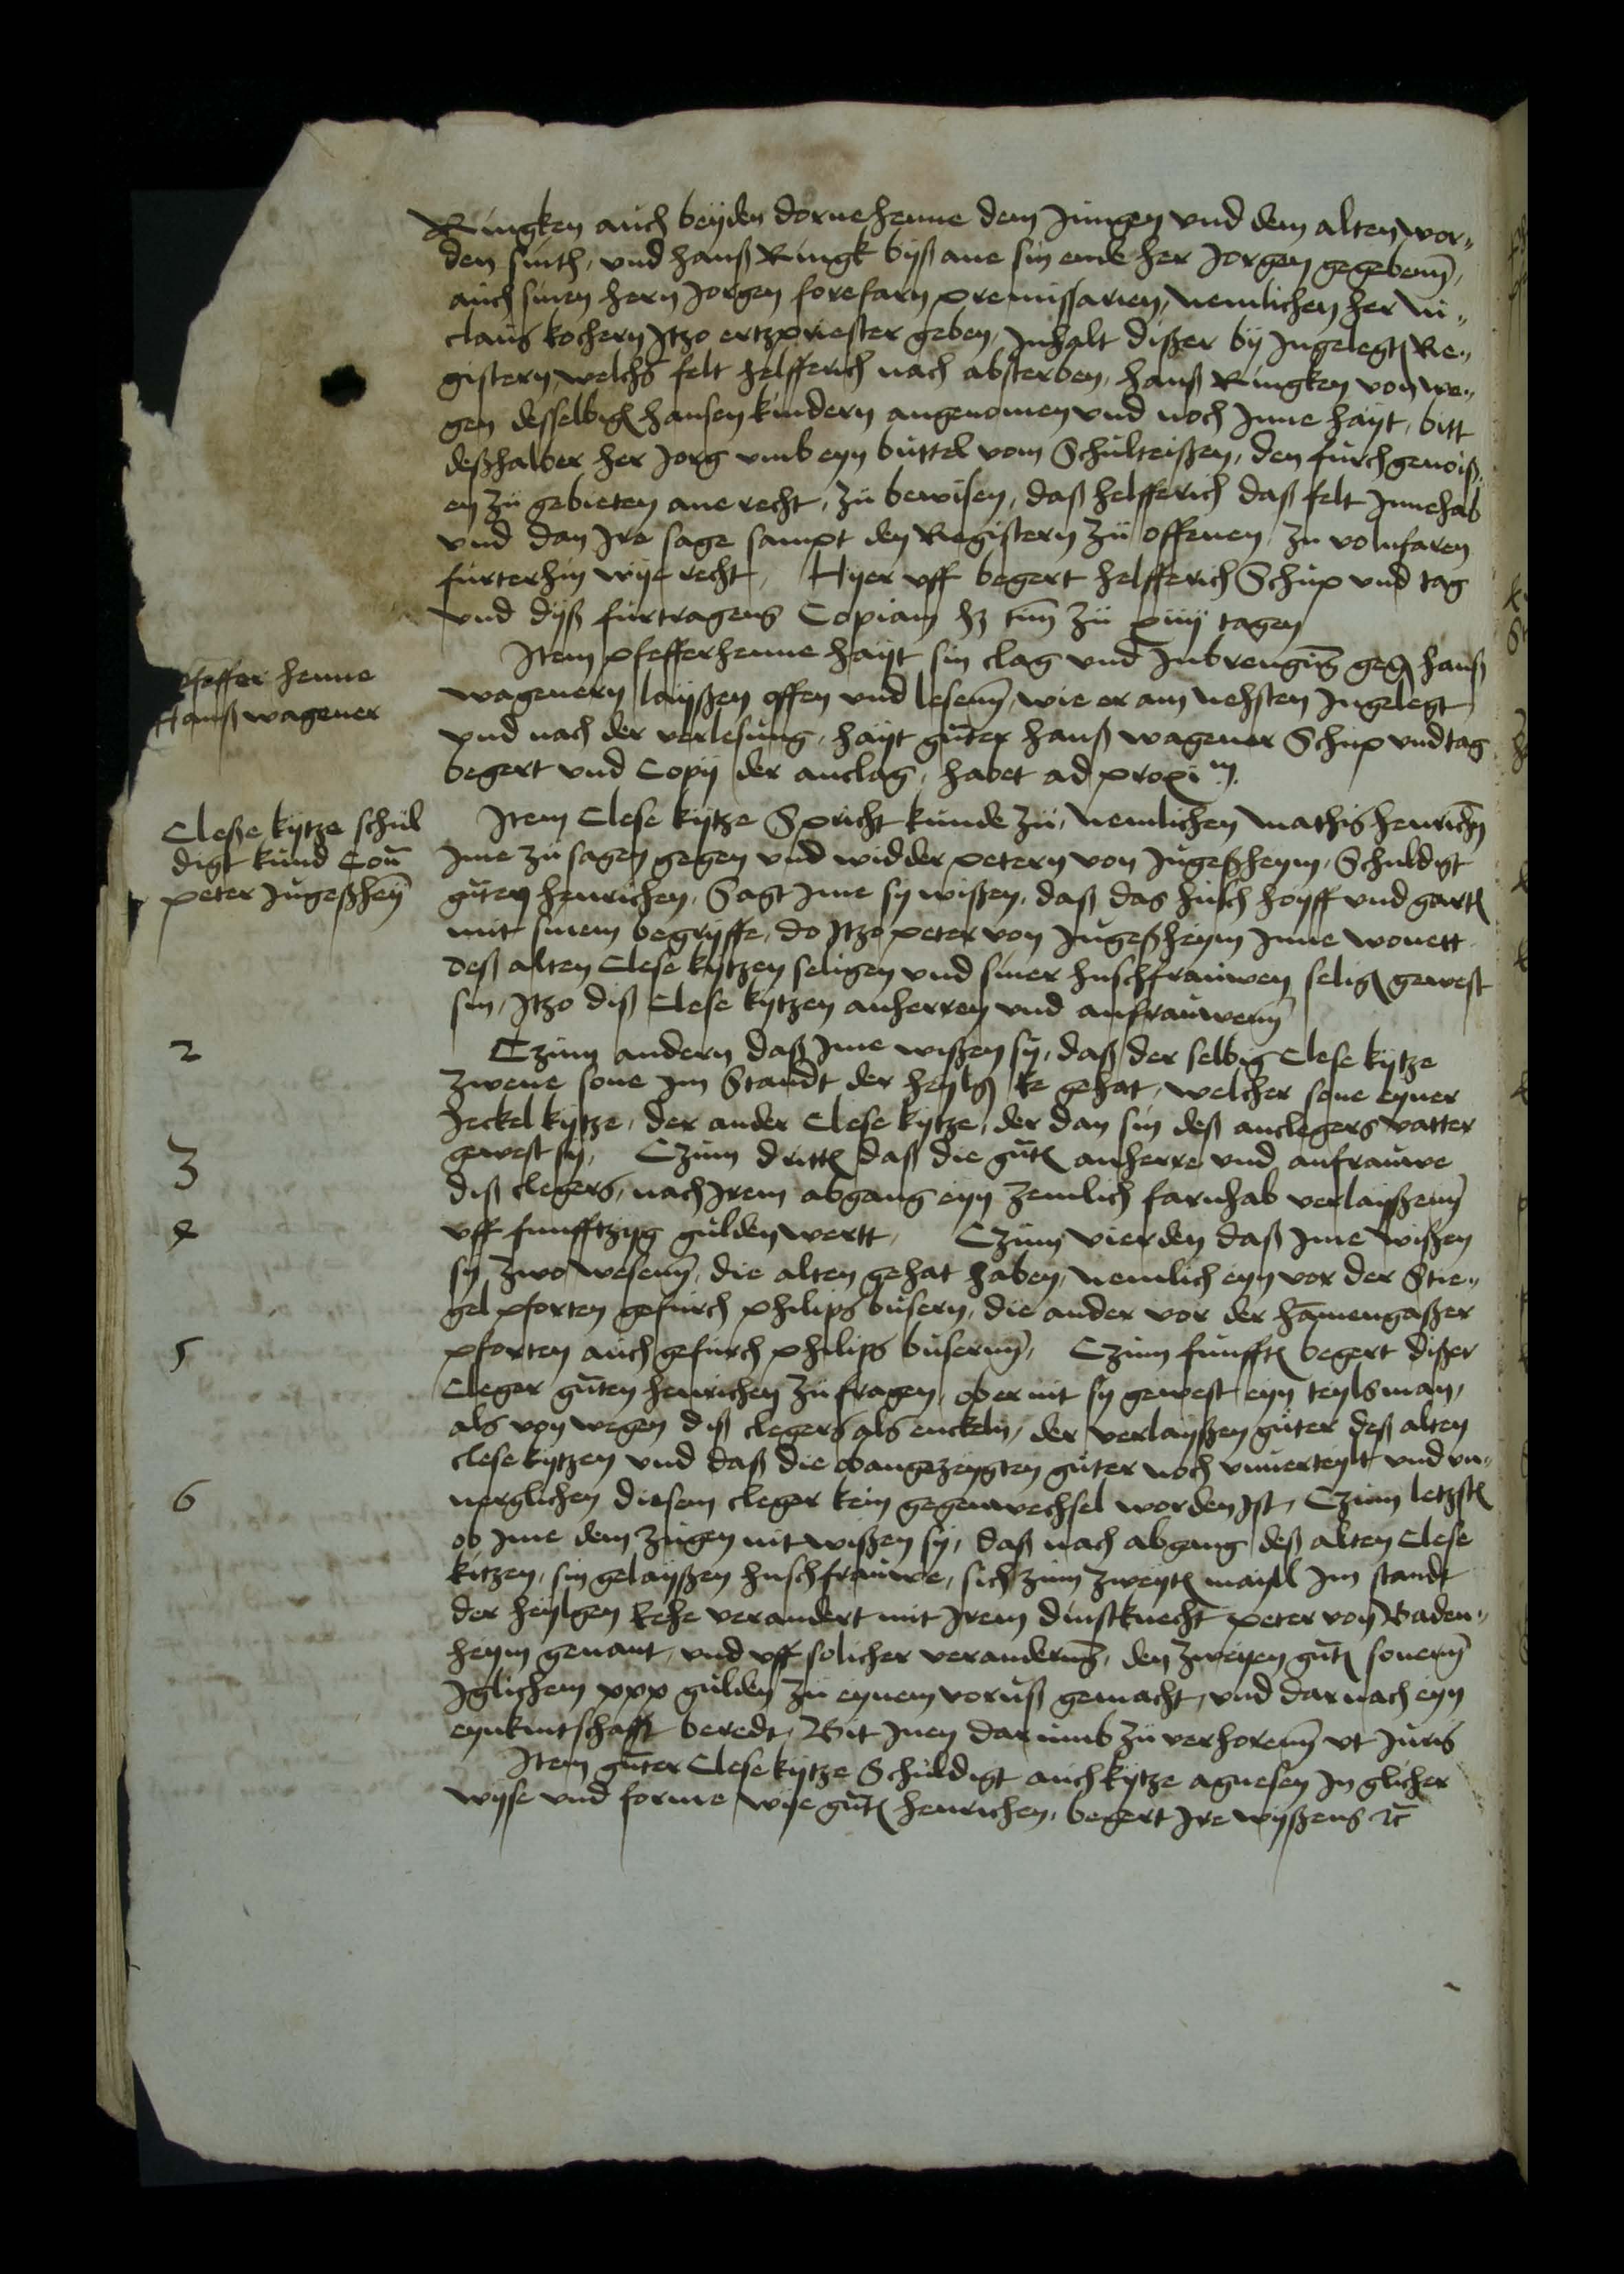 Ringken auch beyden dorrehenne dem Jungen vnd dem alten wor„
den sinth, vnd hanß Ringk byß ane sin ende her Jorgen gegeben,
auch sinen hern Jorgen forefarn premissarien, nemlichen her Ni„
claus kochern Jtzo ertzpriester geben, Jnhalt dißer by Jngelegten Re„
gistern, welchs felt helfferich nach absterben, hanß Ringken von we„
gen desselbigen hansen kindern angenomen vnd noch Jnne hayt, bitt
deßhalber her Jorg vmb eyn buttel vom Schulteißen, den furchgenoiß„
en zu gebieten ane recht, zu bewisen, daß helfferich daß felt Jnnehab
vnd dan Jre sage sampt den Registern zu offenen, zu volnfaren
furterhin wye recht, Hyer vff begert helfferich Schup vnd tag
vnd dyß furtragens Copiam hz tim zu xiiij tagen
Pfeffer henne
Hanß wagener
Jtem pfefferhenne hayt sin clag vnd Jnbrengung gegen hanß
wagenern layßen offen vnd lesenn, wie er am nehsten Jngelegt
vnd nach der verlesung, hayt guter hanß wagener Schup vnd tag
begert vnd Copy der anclag, habet ad proxim.
Cleße kytze schul
digt kund Con
peter Jngeßheym
Jtem Clese kytze Spricht kunde zu, nemlichen mathis henrichen
Jme zu sagen gegen vnd widder petern von Jngeßheym, Schuldigt
guten henrichen, Sagt Jme sy wißen, daß das husch hoyff vnd garten
mit sinem begryffe, do Jtzo peter von Jngeßheym Jnne wonett
deß alten Clese kytzen seligen vnd siner huschfrauwen seligen gewest
sin, Jtzo diß Clese kytzen anherren vnd anfrauwenn
2
Czum andern daß Jme wißen sy, daß der selbig Clese kytze
zwene sone Jm Standt der heylgen Ee gehat, welcher sone eyner
Jeckel kytze, der ander Clese kytze, der dan sin deß anclegers vatter
3
gewest sy, Czum dritten daß die guten anherre vnd anfrauwe
diß clegers, nach Jrem abgang eyn zemlich farnhab verlayßenn
4
vff funfftzyg gulden wertt, Czum vierden daß Jme wißen
sy, zwo wesenn, die alten gehat haben, nemlich eyn vor der Stie„
gel pforten gefurch philips busern, die ander vor der hamengaßer
5
pforten auch gefurch philips busernn, Czum funfften begert dißer
Cleger guten henrichen zu fragen, ob er nit sy gewest eyn teylsman,
als von wegen diß clegers als enckeln, der verlayßen guter deß alten
clese kytzen vnd daß die obangezeygten guter noch vnuerteylt vnd vn„
6
uerglichen diesem cleger kein gegenwechsel worden Jst, Czum letzsten
ob Jme dem zugen nit wißen sy, daß nach abgang deß alten Clese
kitzen, sin gelayßen huschfrauwe, sich zum zweyten maysl Jm standt
der heylgen Eehe verandert mit Jrem dinstknecht peter von Baden„
heym genant, vnd vff solicher veranderung, den zweyen guten sonenn
Jglichem xxx gulden zu eynem voruß gemacht, vnd darnach eyn
eynkintschafft beredt, Bit Jnen darumb zu verhorenn vt Juris
Jtem guter Clese kytze Schuldigt auch kytze agnesen Jn glicher
wyse vnd forme wye guten henrichen, begert Jre wyßens etc